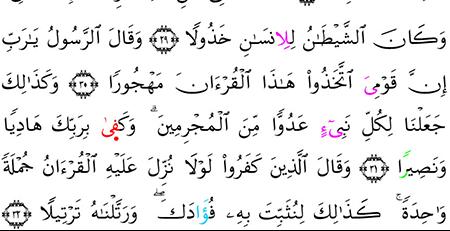 وَكَانَ ٱلشَّيْطَـٰنُ لِلِانسَـٰنِ خَذُولًا ۝٢٩ وَقَالَ ٱلرَّسُولُ يَـٰرَبِّ
إِنَّ قَوْمِىَ ٱتَّخَذُوا۟ هَـٰذَا ٱلْقُرْءَانَ مَهْجُورًا ۝٣٠ وَكَذَٰلِكَ
جَعَلْنَا لِكُلِّ نَبِىٓءٍ عَدُوًّا مِّنَ ٱلْمُجْرِمِينَ ۗ وَكَفىٰ بِرَبِّكَ هَادِيًا
وَنَصِيرًا ۝٣١ وَقَالَ ٱلَّذِينَ كَفَرُوا۟ لَوْلَا نُزِّلَ عَلَيْهِ ٱلْقُرْءَانُ جُمْلَةً
وَٰحِدَةً ۚ كَذَٰلِكَ لِنُثَبِّتَ بِهِۦ فُؤَادَكَ ۖ وَرَتَّلْنَـٰهُ تَرْتِيلًا ۝٣٢